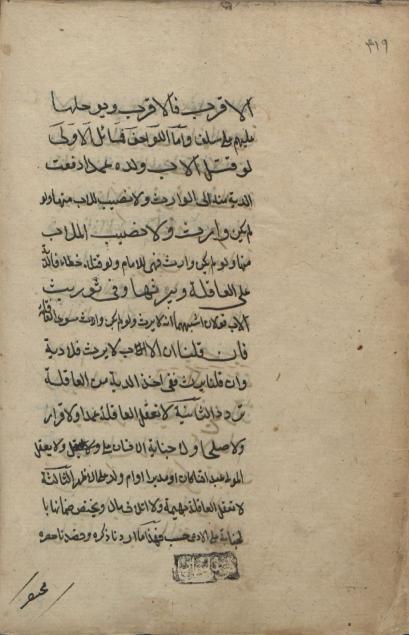 ۴۱۹
الاقرب فالاقرب ويدخلها
عليهم على سلف واما اللواحق فمسائل الاولى
لو قتل الاب ولده عمدا دفعت
الدية منه الى الوارث ولا نصيب للاب منها ولو
لم يكن وارث ولا نصيب للاب
منها ولو لم يكن وارث فهى للامام ولو قتله خطاء فالدية
على العاقلة ويرثها وفى توريث
الاب قولان اشبههما انه لا يرث ولو لم يكن وارث سوى العاقلة
فان قلنا ان الاب لا يرث فلا دية
وان قلنا يرث ففى اخذ الدية من العاقلة
تردد الثانية لا تعقل العاقلة عمدا ولا اقرار
ولا صلحا ولا جناية الانسان على ولا يعقل
المولى عبدا كان او مدبرا او ام ولد على الاظهر الثالثة
لا تعقل العاقلة بهيمة ولا اتلاف مال ويختص ضمانها با
لجناية على الادمى حسب فهذا ما اردنا ذكره وقصدنا حصره